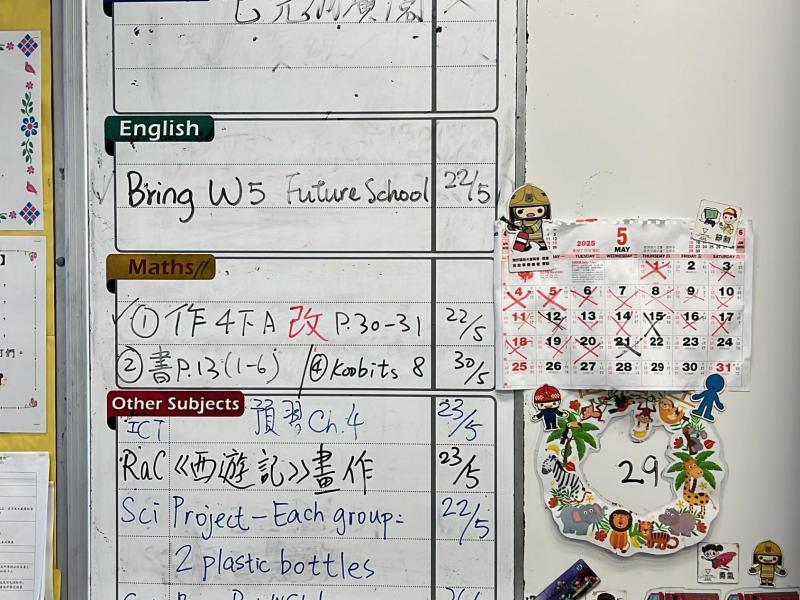 English
Bring W5 Future School 22/5
Maths
① 作4下A 改 P.30-31 22/5
② 書P.13(1-6) ④ Koobits 8 30/5
Other Subjects
ICT 預習 Ch.4 23/5
RaC 《西遊記》畫作 23/5
Sci Project - Each group: 22/5
2 plastic bottles
2025 5 MAY
TUESDAY WEDNESDAY THURSDAY FRIDAY SATURDAY
1 2 3
4 5 6 7 8 9 10
11 12 13 14 15 16 17
18 19 20 21 22 23 24
25 26 27 28 29 30 31
節制
29
勇氣